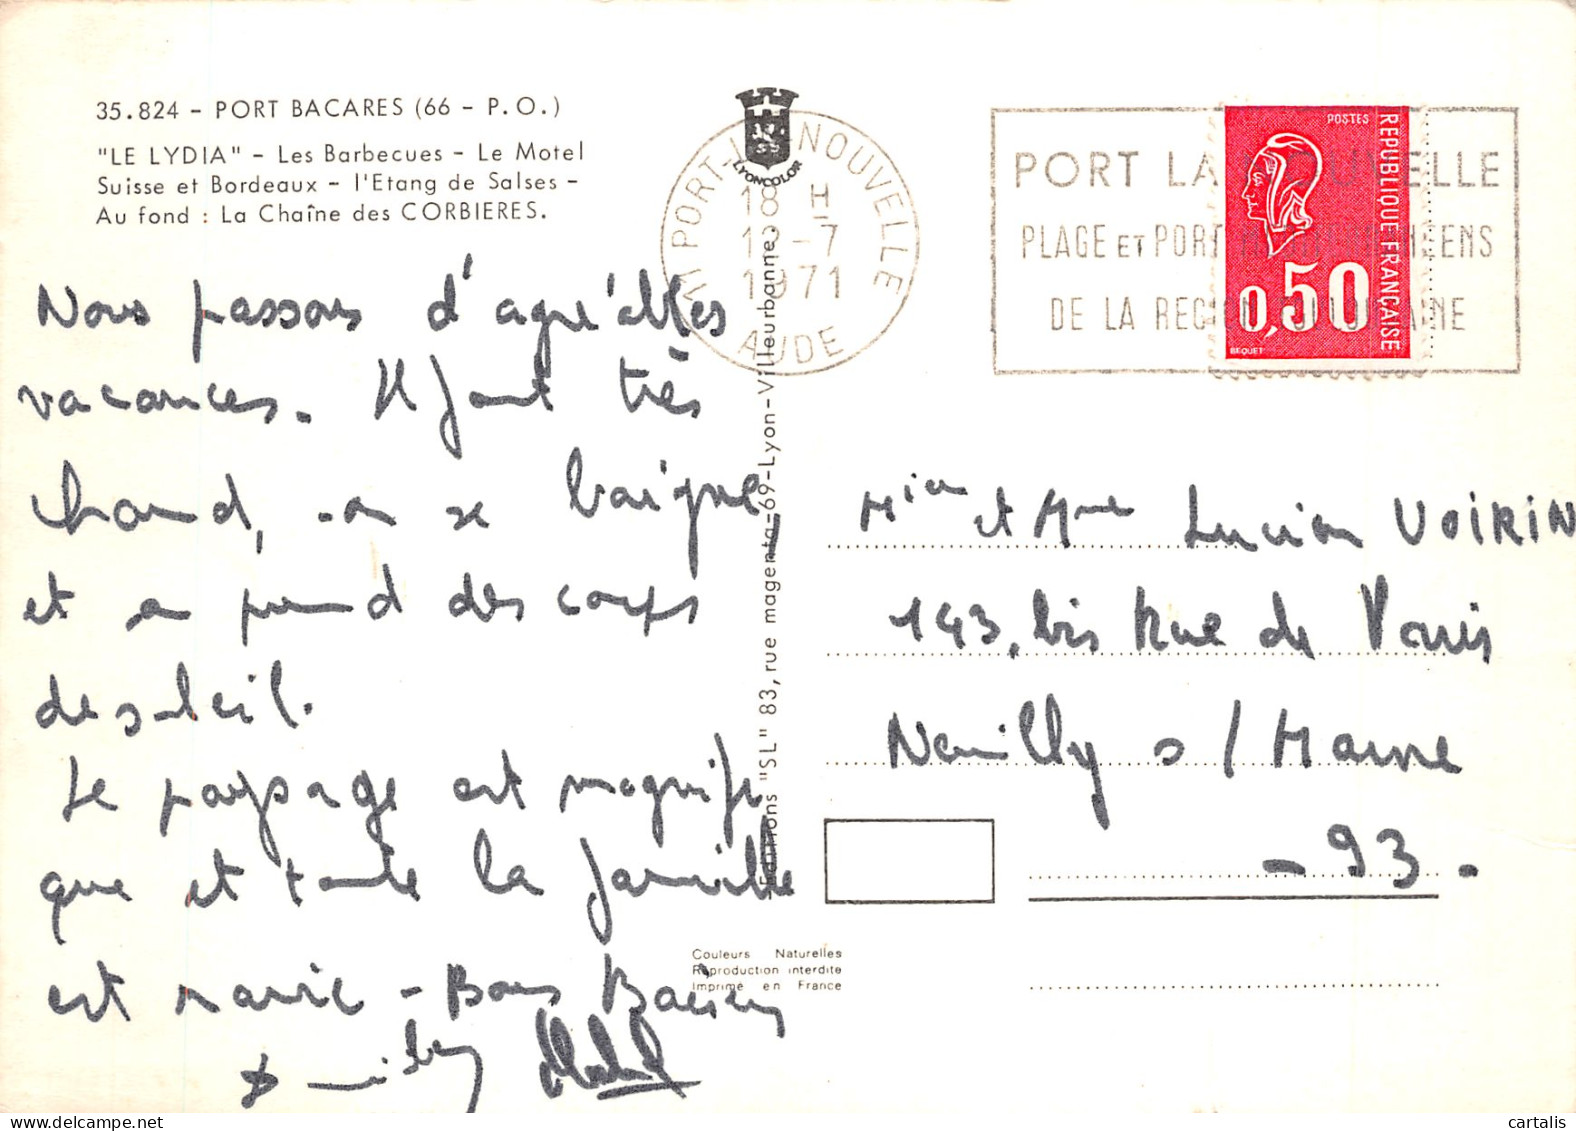 35.824 - PORT BACARES (66 - P.O.)
"LE LYDIA" - Les Barbecues - Le Motel
Suisse et Bordeaux - l'Etang de Salses -
Au fond : La Chaîne des CORBIERES.
Nous passons d'agréables
vacances. Il fait très
chaud, on se baigne,
et on prend des corps
de soleil.
Le paysage est magnifi
que et toute la famille
est ravie - Bons Baisers
LYONCOLOR
11 PORT-LA-NOUVELLE
18 H
-7
1971
AUDE
Editions "SL" 83, rue magenta-69-Lyon-Villeurbanne
PORT LA NOUVELLE
PLAGE ET PORT
DE LA REGION
POSTES
REPUBLIQUE FRANÇAISE
0,50
BEQUET
et Mme Lucien VOIRIN
143, bis Rue de Paris
Neuilly s/Marne
- 93 -
Couleurs Naturelles
Reproduction interdite
Imprimé en France
cartalis
www.delcampe.net